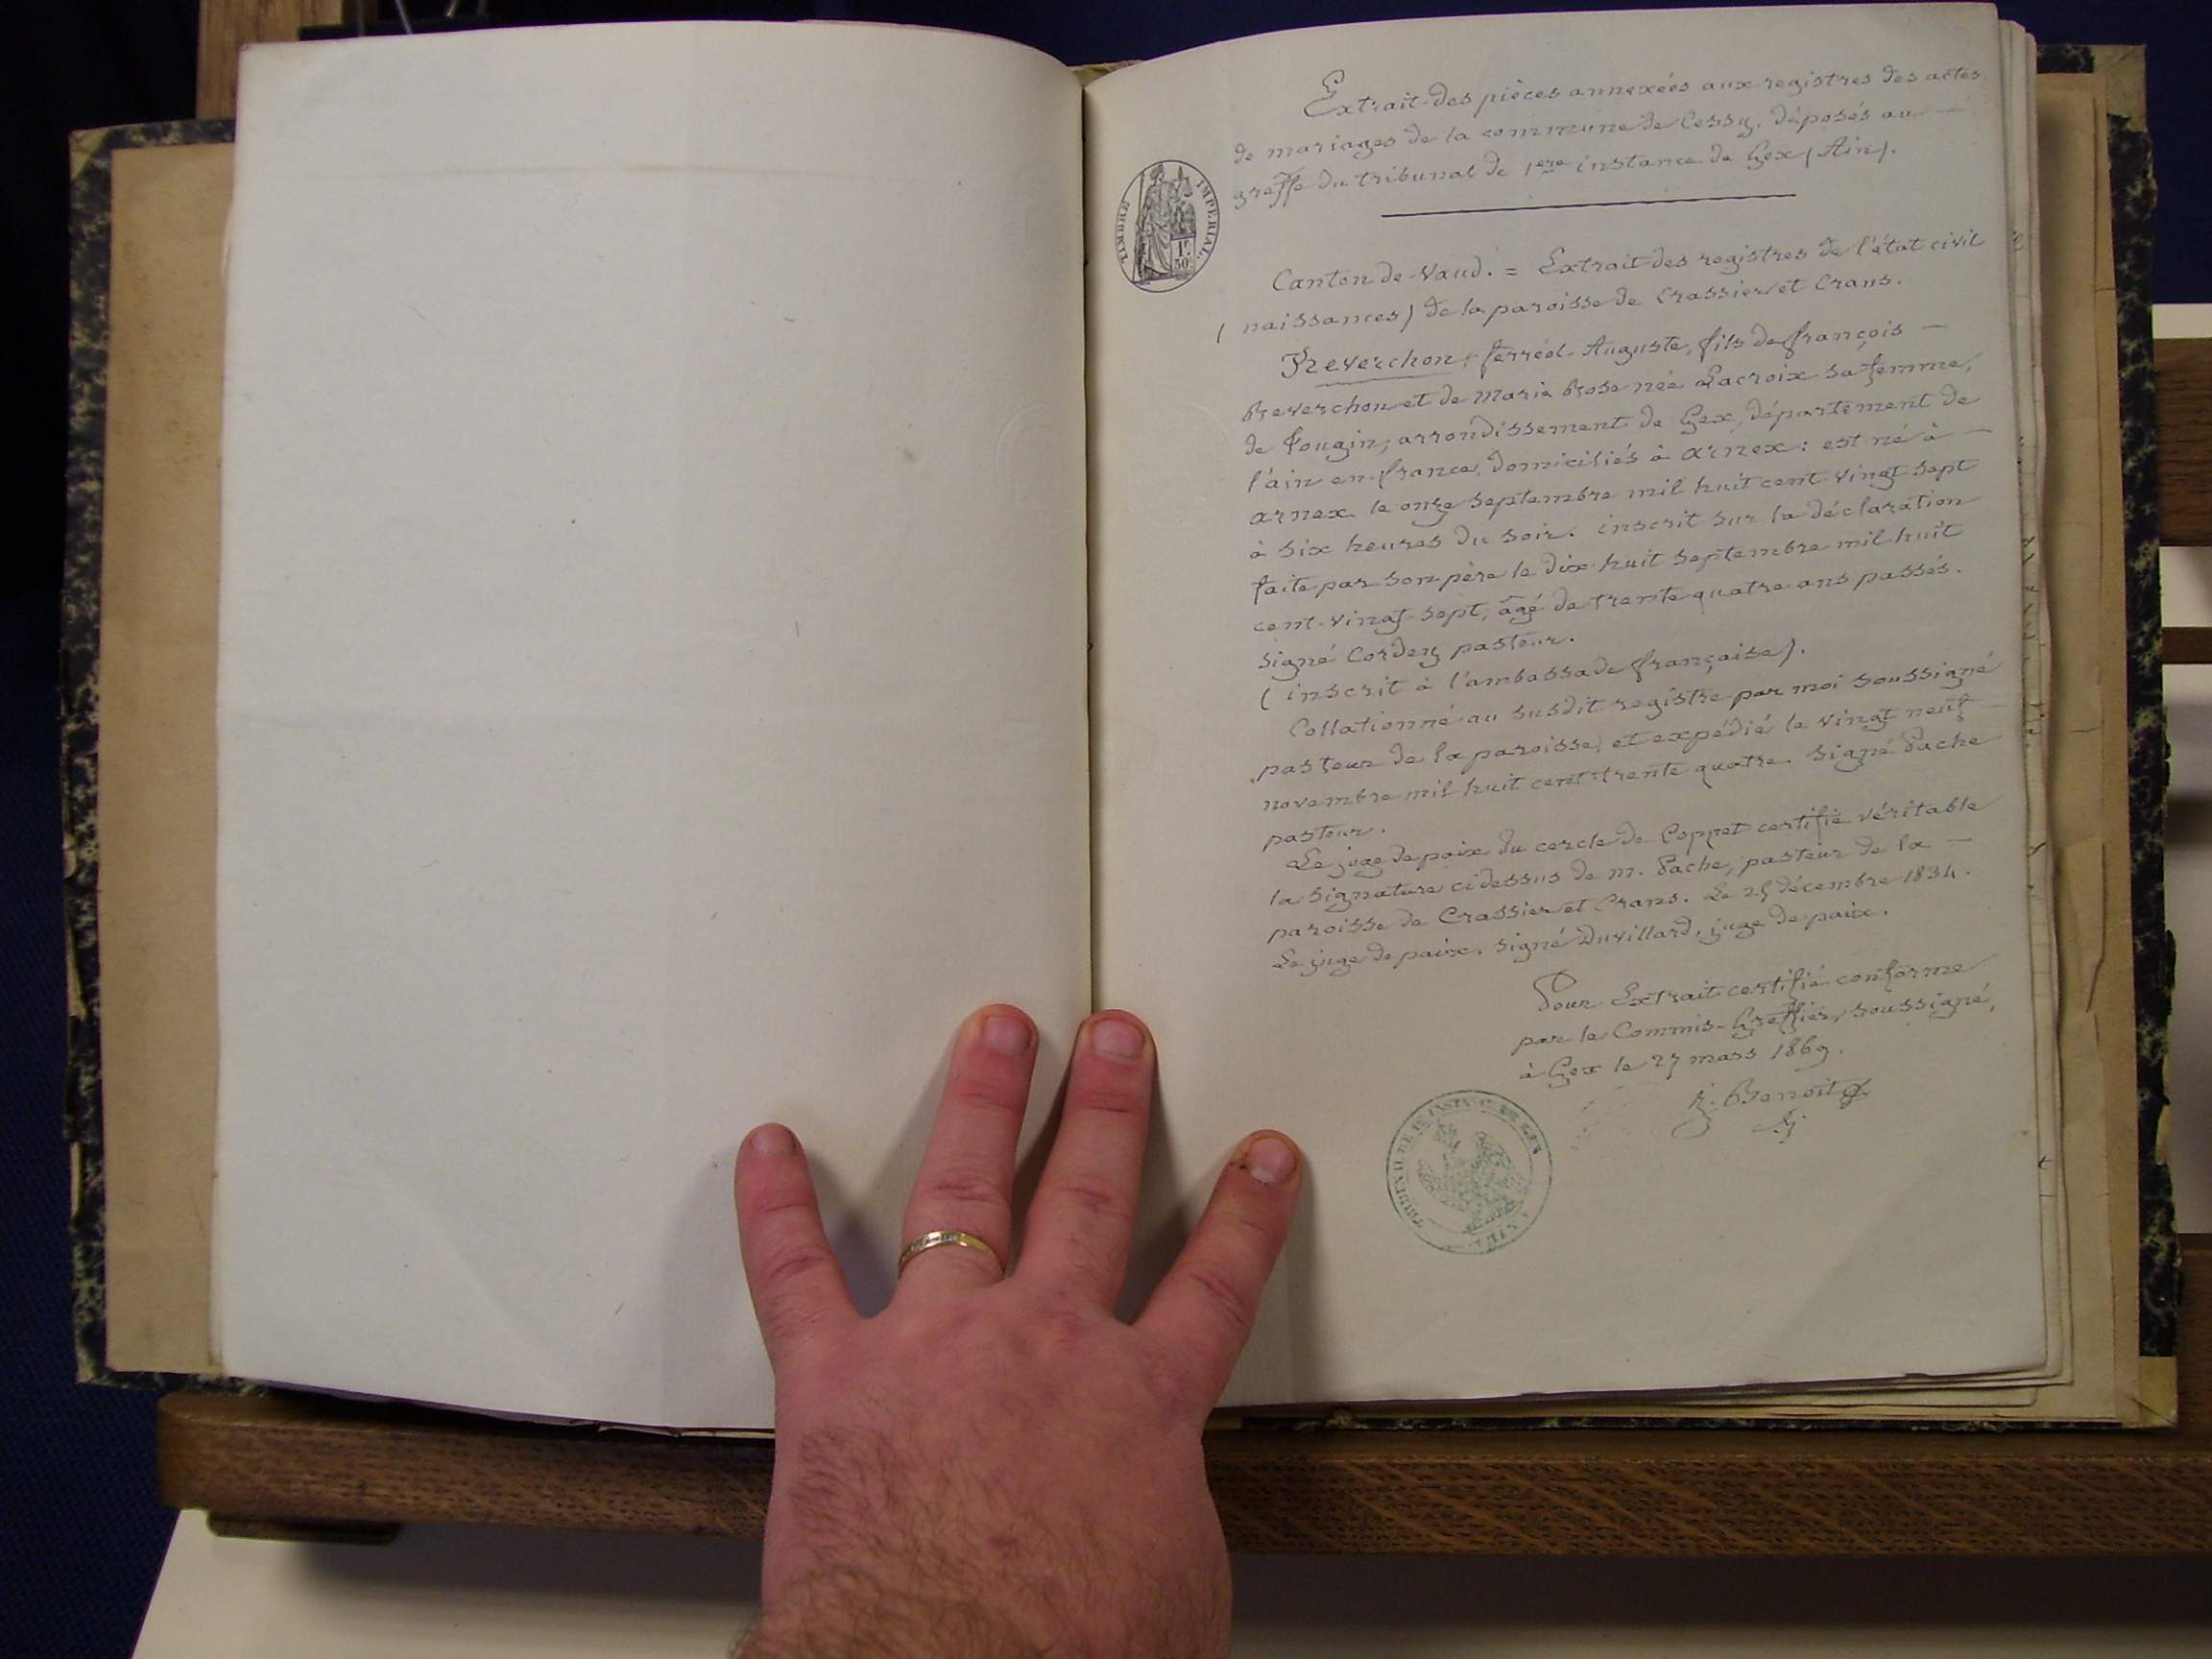 Extrait des pièces annexées aux registres des actes
de mariages de la commune de Cessy, déposés au —
greffe du tribunal de 1ere instance de Gex (Ain).
TIMBRE IMPERIAL
1F
50c
Canton de Vaud. = Extrait des registres de l'état civil
(naissances) de la paroisse de Crassier et Crans.
Reverchon, ferréol-Auguste, fils de françois —
Reverchon et de Marie Rose née Lacroix sa femme,
de Pougin, arrondissement de Gex, département de
l'ain en france, domiciliés à arnex: est né à —
arnex le onze septembre mil huit cent vingt sept
à six heures du soir. inscrit sur la déclaration
faite par son père le dix huit septembre mil huit
cent-vingt-sept, âgé de trente quatre ans passés.
signé Cordey pasteur.
(inscrit à l'ambassade française).
Collationné au susdit registre par moi soussigné
pasteur de la paroisse, et expédié le vingt neuf —
novembre mil huit cent trente quatre. signé Pache
pasteur.
Le juge de paix du cercle de Coppet certifie véritable
la signature cidessus de m. Pache, pasteur de la —
paroisse de Crassier et Crans. Le 25 décembre 1834.
Le juge de paix. signé Duvillard, juge de paix.
Pour Extrait certifié conforme
par le Commis-Greffier, soussigné,
à Gex le 27 mars 1869.
Benoit
TRIBUNAL DE 1RE INSTANCE DE GEX